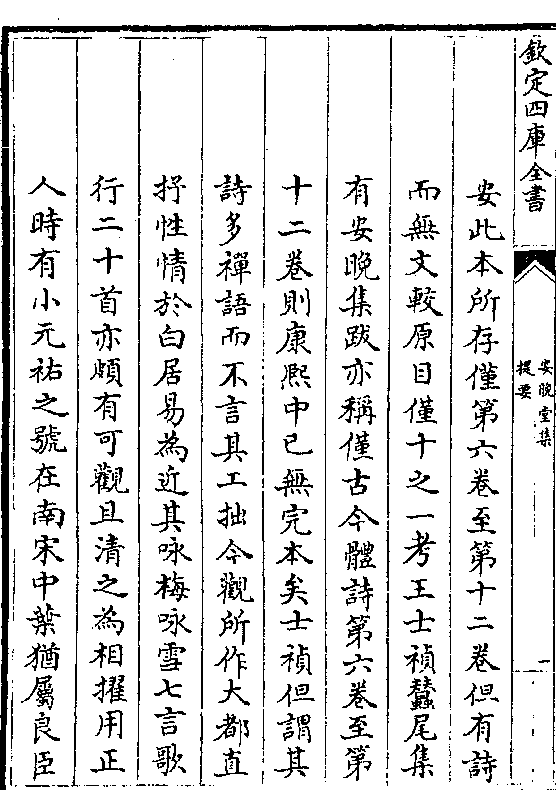 欽定四庫全書
安晚堂集
提要
一
安此本所存僅第六卷至第十二卷但有詩
而無文較原目僅十之一考王士禎蠶尾集
有安晚集跋亦稱僅古今體詩第六卷至第
十二卷則康熙中已無完本矣士禎但謂其
詩多禪語而不言其工拙今觀所作大都直
抒性情於白居易為近其咏梅咏雪七言歌
行二十首亦頗有可觀且清之為相擢用正
人時有小元祐之號在南宋中葉猶屬良臣